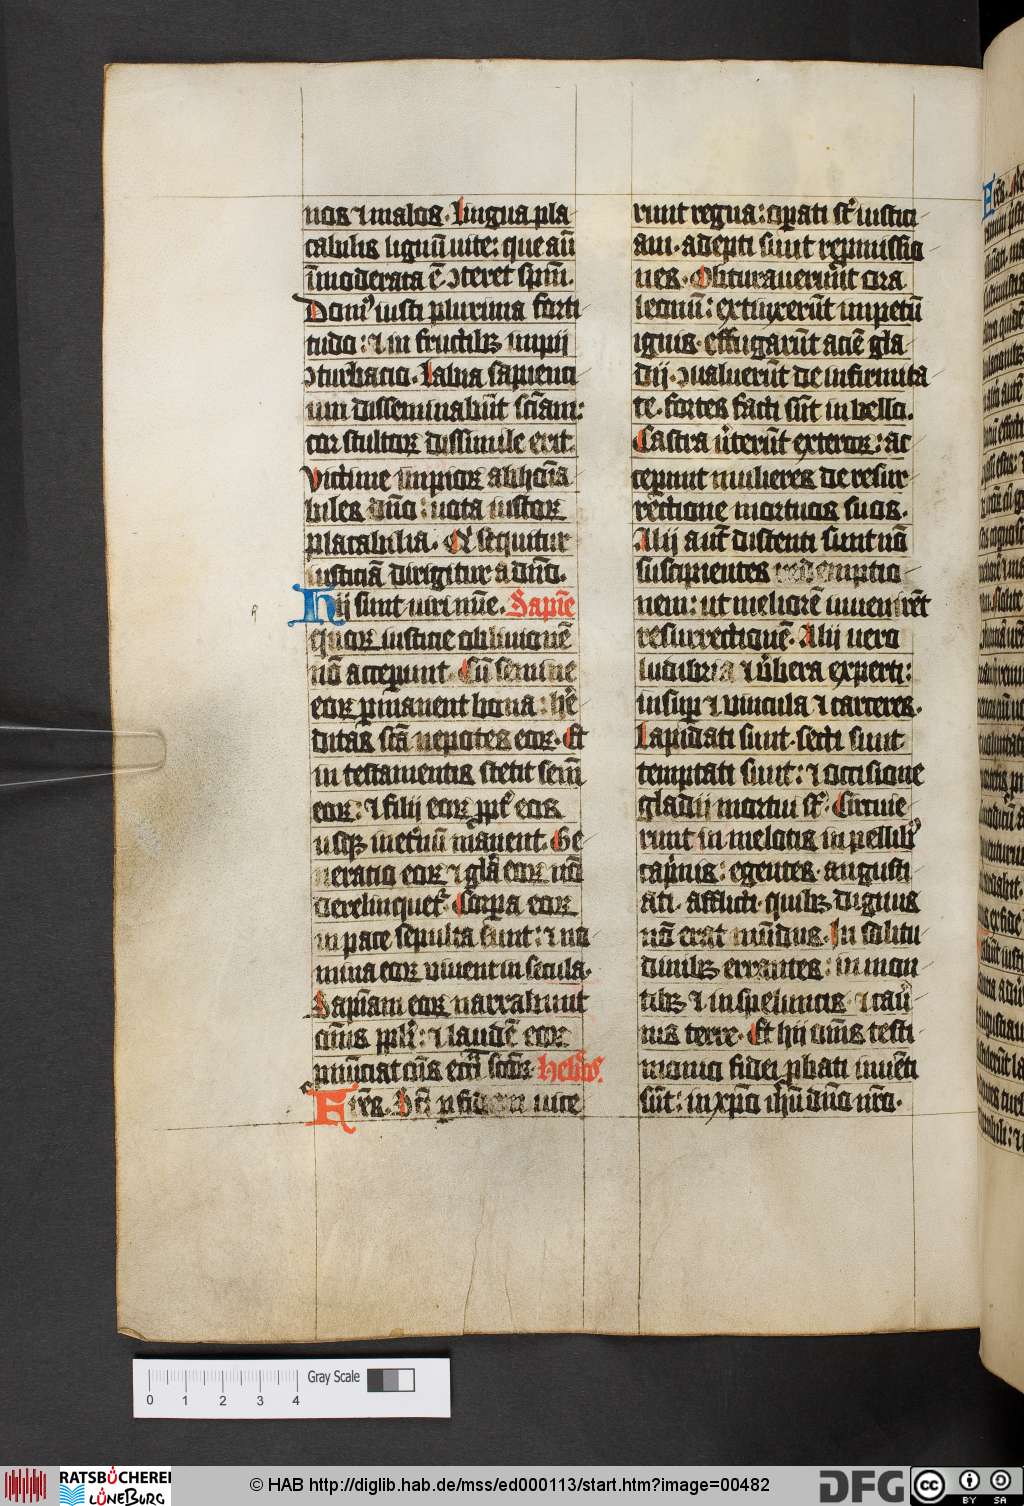 nos ⁊ malos. Lingua pla
cabilis lignū uite: que aūt
īmoderata ē ↄteret spm̄.
Domꝰ iusti plurima forti
tudo: ⁊ in fructibꝫ impij
ↄturbacio. Labia sapienti
um disseminabūt sciam:
cor stultoꝝ dissimile erit.
Victime impioꝝ abhoīa
biles dnō: uota iustoꝝ
placabilia. Qͥ sequitur
iusticiā dirigitur a dnō.
Hij sunt uiri mīe. Sapīe
quoꝝ iusticie obliuionē
nō acceꝑunt. Cū semine
eoꝝ ꝑmanent bona: he
ditas sctā nepotes eoꝝ. Et
in testamentis stetit semē
eoꝝ: ⁊ filij eoꝝ ꝓpt̄ eos
usqꝫ in etnū manent. Ge
neratio eoꝝ ⁊ glā eoꝝ nō
derelinquet᷑. Corpa eoꝝ
in pace sepulta sunt: ⁊ no
mina eoꝝ viuent in secula.
Sapiam eoꝝ narrabunt
om̄s ppli: ⁊ laudē eoꝝ
ꝓnūciat om̄s eccā scōꝝ. Hebͦs.
Fres. Scī ꝑ fidem uice
runt regna: oꝑati st̄ iustici
am. adepti sunt repmissio
nes. Obturauerūnt ora
leonū: extinxerūt impetū
ignis. effugarūt aciē gla
dij. ↄualuerūt de infirmita
te. fortes facti sūt in bello.
Castra uterūt exteroꝝ: ac
ceꝑunt mulieres de resur
rectione mortuos suos.
Alij aut̄ distenti sunt nō
suscipientes redemptio
nem: ut meliorē inuenirēt
resurrectionē. Alij uero
ludibria ⁊ ūbera experti:
insuꝑ ⁊ vincula ⁊ carceres.
Lapidati sunt. secti sunt
temptati sunt: ⁊ occisione
gladij mortui st̄. Circuie
runt in melotis in pellibꝰ
capnis: egentes. angusti
ati. afflicti. quibꝫ dignus
nō erat mūdus. In solitu
dinibꝫ errantes: in mon
tibꝫ ⁊ in speluncis ⁊ cau
nis terre. Et hij om̄s testi
monio fidei ꝓbati inuēti
sūt: in xpō ihū dnō nrō.
0 1 2 3 4 Gray Scale
RATSBÜCHEREI
LÜNEBURG
© HAB http://diglib.hab.de/mss/ed000113/start.htm?image=00482
DFG
cc BY SA